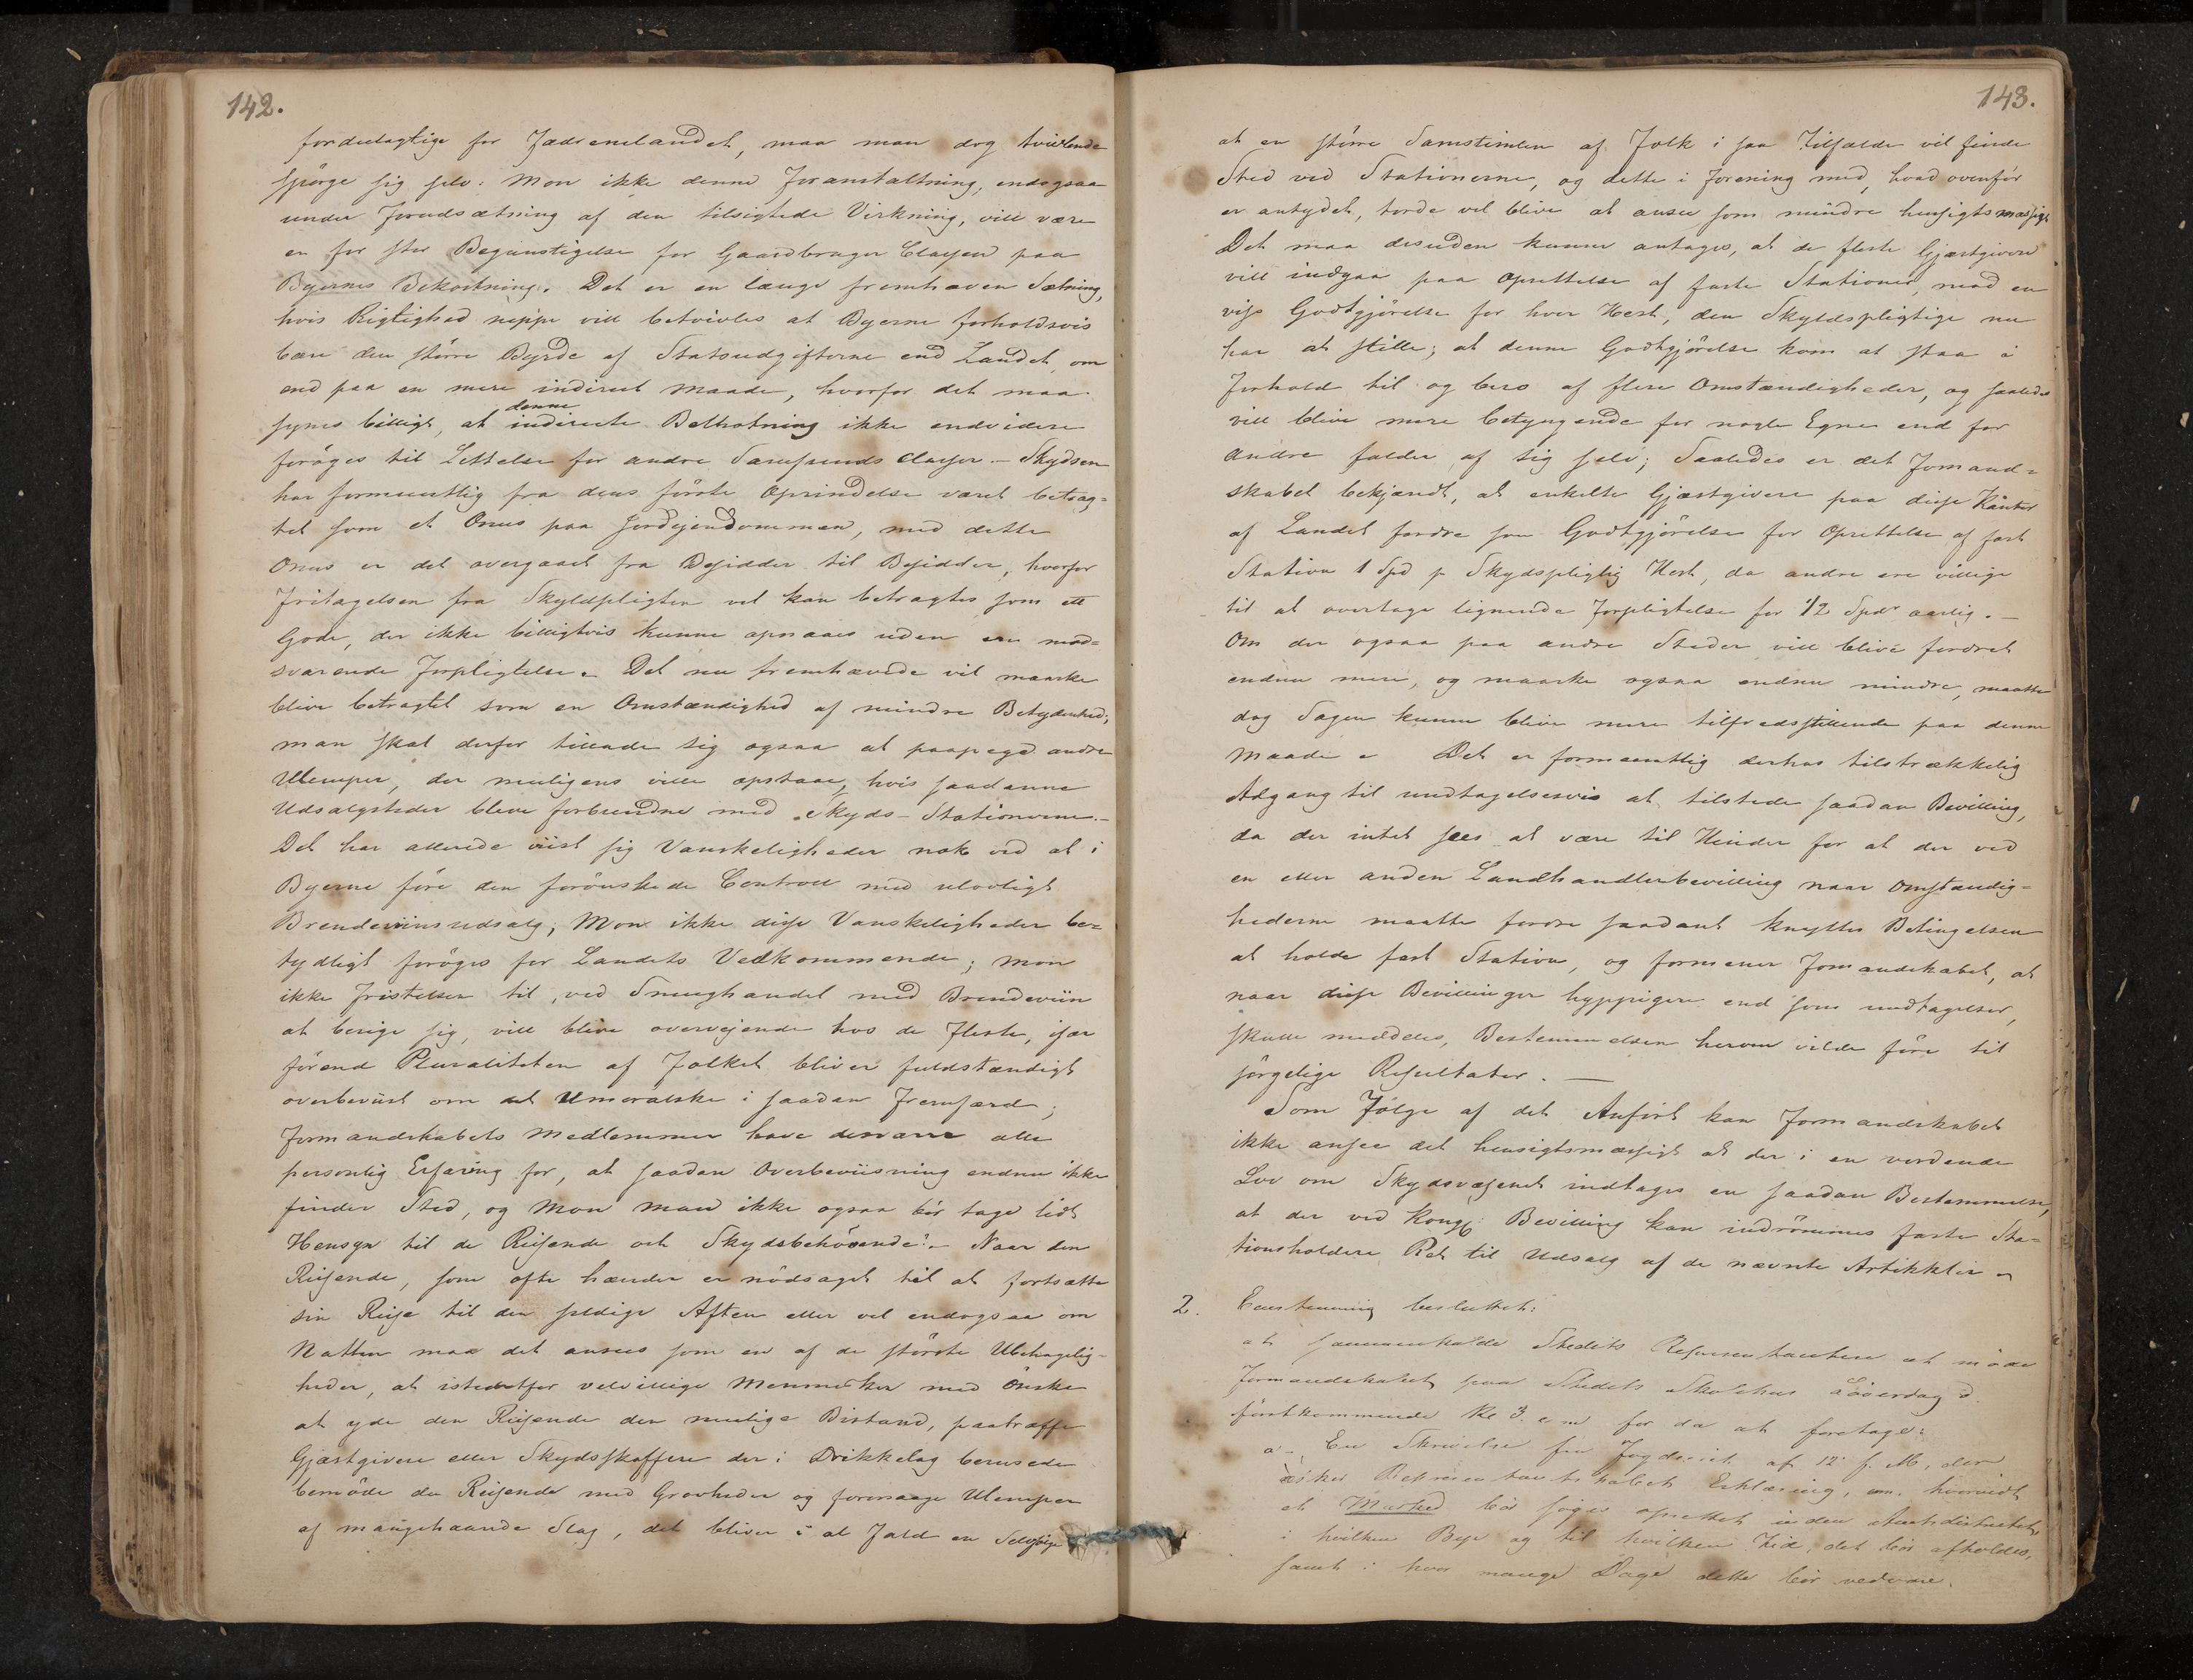 142.
fordeelagtige for Fædrenelandet, maa man dog tvivlende
spörge sig selv: Mon ikke denne Foranstaltning, endogsaa
under Forudsætning af den tilsigtede Virkning, vill være
en for stor Begunstigelse for Gaardbruger Classen paa
Byernes Bekostning. Det er en længe fremhæven Sætning,
hvis Rigtighed neppe vill betvivles at Byerne forholdsvis
bære den större Byrde af Statsudgifterne end Landet, om
end paa en mere indirect Maade, hvorfor det maa
synes billigt, at denne indirecte Beskatning ikke endvidere
foröges til Lettelse for andre Samfunds Classer. - Skydsen
har formeentlig fra dens förste Oprindelse været betrag=
tet som et Onus paa Jordejendommen, med dette
Onus er det overgaaet fra Besidder til Besidder, hvorfor
Fritagelsen fra Skydspligten vel kan betragtes som ett
Gode, der ikke billigtvis kunne opnaaes uden en mod=
svarende Forpligtelse. Det nu fremhævede vil maaske
blive betragtet som en Omstændighed af mindre Betydenhed;
man skal derfor tillade sig ogsaa at paapege andre
Ulemper, der muligens ville opstaae, hvis saadanne
Udsalgsteder bleve forbundne med Skyds-Stationerne. -
Det har allerede viist sig Vanskeligheder nok ved at i
Byerne före den forönskede Controll med ulovligt
Brendeviinsudsalg; Mon ikke disse Vanskeligheder be=
tydligt foröges for Landets Vedkommende; mon
ikke Fristelsen til, ved Smughandel med Brendeviin
at berige sig, vill blive overvejende hos de fleste, især
förend Pluraliteten af Folket bliver fuldstændigt
overbeviist om det Umoralske i saadan Fremfærd;
Formandskabets Medlemmer have desværre alle
personlig Erfaring for, at saadan Overbeviisning endnu ikke
finder Sted, og Mon man ikke ogsaa bör tage lidt
Hensyn til de Reisende och Skydsbehövende? - Naar den
Reisende, som ofte hænder er nödsaget til at fortsætte
sin Reise til den sildige Aften eller vel endogsaa om
Natten maa det ansees som en af de störste Ubehagelig-
heder, at istedetfor velvillige Mennesker med Önske
at yde den Reisende den mulige Bistand, paatræffe
Gjæstgivere eller Skydsskaffere der i Drikkelag berusede
bemöde den Reisende med Grovheder og foraarsage Ulemper
af mangehaande Slag, det bliver i al Fald en Selvfölge
143.
at en större Samstimlen af Folk i saa Tilfælde vil finde
Sted ved Stationerne, og dette i Forening med, hvad ovenför
er antydet, torde vel blive at ansee som mindre hensigtsmæssigt
Det maa desuden kunne antages, at de fleste Gjæstgivere
vill indgaa paa Oprettelse af faste Stationer, mod en
viss Godtgjörelse for hver Hest, den Skydspligtige nu
har at stille; at denne Godtgjörelse kom at staa i
Forhold til og bero af flere Omstændigheder, og saaledes
vill blive mere betyngende for nogle Egne end for
andre falder af sig selv; Saaledes er det Formand=
skabet bekjendt, at enkelte Gjæstgivere paa disse Kanter
af Landet fordre som Godtgjörelse for Oprettelse af fast
Station 1 Spd p Skydspligtig Hest, da andre ere villige
til at overtage lignende Forpligtelse for 1/2 Spdr aarlig. -
Om der ogsaa paa andre Steder vill blive fordret
endnu mere, og maaske ogsaa endnu mindre, maatte
dog Sagen kunne blive mere tilfredsstillende paa denne
Maade - Det er formeentlig derhos tilstrækkelig
Adgang til undtagelsesvis at tilstede saadan Bevilling,
da der intet sees at være til Hinder for at der ved
en eller anden Landhandlerbevilling naar Omstændig=
hederne maatte fordre saadant knyttes Betingelsen
at holde fast Station, og formener Formandskabet, at
naar disse Bevillinger hyppigere end som undtagelser,
skulle meddeles, Bestemmelsen herom vilde före til
sörgelige Resultater. -
Som Fölge af det Anförte kan Formandskabet
ikke ansee det hensigtsmæssigt at der i en vordende
Lov om Skydsvæsenet indtages en saadan Bestemmelse,
at der ved Kongl: Bevilling kan indrömmes faste Sta=
tionsholdere Ret til Udsalg af de nævnte Artikkler -
2. Eenstemmig besluttet:
at sammenkalde Stedets Repræsentantere at möde
Formandskabet paa Stedets Skolehus Löverdag d.
förstkommende Kl 3 e m for da at foretage:
a - En Skrivelse fra Fogderiet af 12 f. M., der
æsker Repræsentantskabets Erklæring, om hvorvidt
et Marked bör söges oprettet inden Amtsdistriktet,
i hvilken Bye og til hvilken Tid, det bör afholdes,
samt i hvor mange Dage dette bör vedvare.